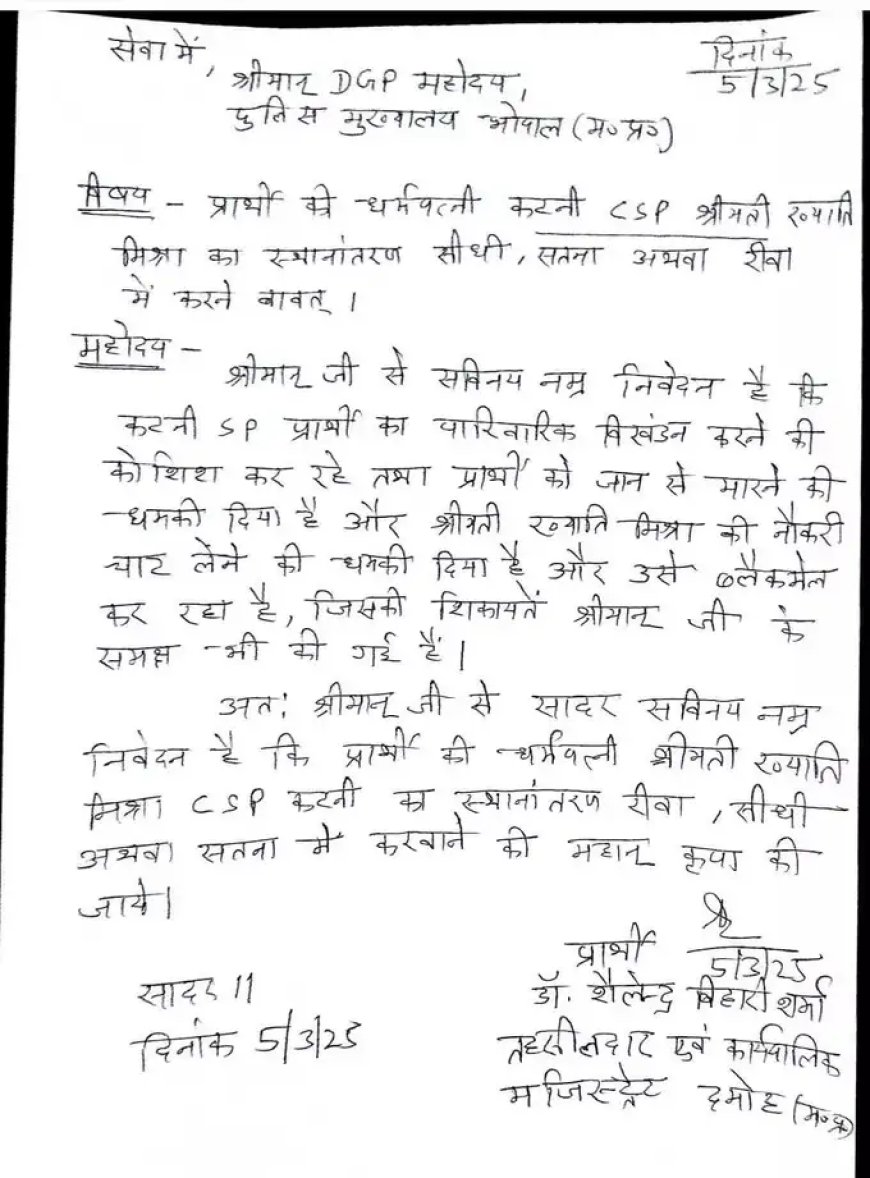 सेवा में,
दिनांक
5/3/25
श्रीमान् DGP महोदय,
पुलिस मुख्यालय भोपाल (म० प्र०)
विषय - प्रार्थी की धर्मपत्नी कटनी CSP श्रीमती ख्याति
मिश्रा का स्थानांतरण सीधी, सतना अथवा रीवा
में करने बावत् ।
महोदय -
श्रीमान् जी से सविनय नम्र निवेदन है कि
कटनी SP प्रार्थी का पारिवारिक विखंडन करने की
कोशिश कर रहे तथा प्रार्थी को जान से मारने की
धमकी दिया है और श्रीमती ख्याति मिश्रा की नौकरी
चाट लेने की धमकी दिया है और उसे ब्लैकमेल
कर रहा है, जिसकी शिकायतें श्रीमान् जी के
समक्ष भी की गई हैं।
अतः श्रीमान् जी से सादर सविनय नम्र
निवेदन है कि प्रार्थी की धर्मपत्नी श्रीमती ख्याति
मिश्रा CSP कटनी का स्थानांतरण रीवा, सीधी
अथवा सतना में करवाने की महान् कृपा की
जाये।
प्रार्थी
5/3/25
सादर ॥
डॉ. शैलेन्द्र बिहारी शर्मा
दिनांक 5/3/25
तहसीलदार एवं कार्यपालिक
मजिस्ट्रेट दमोह (म० प्र०)